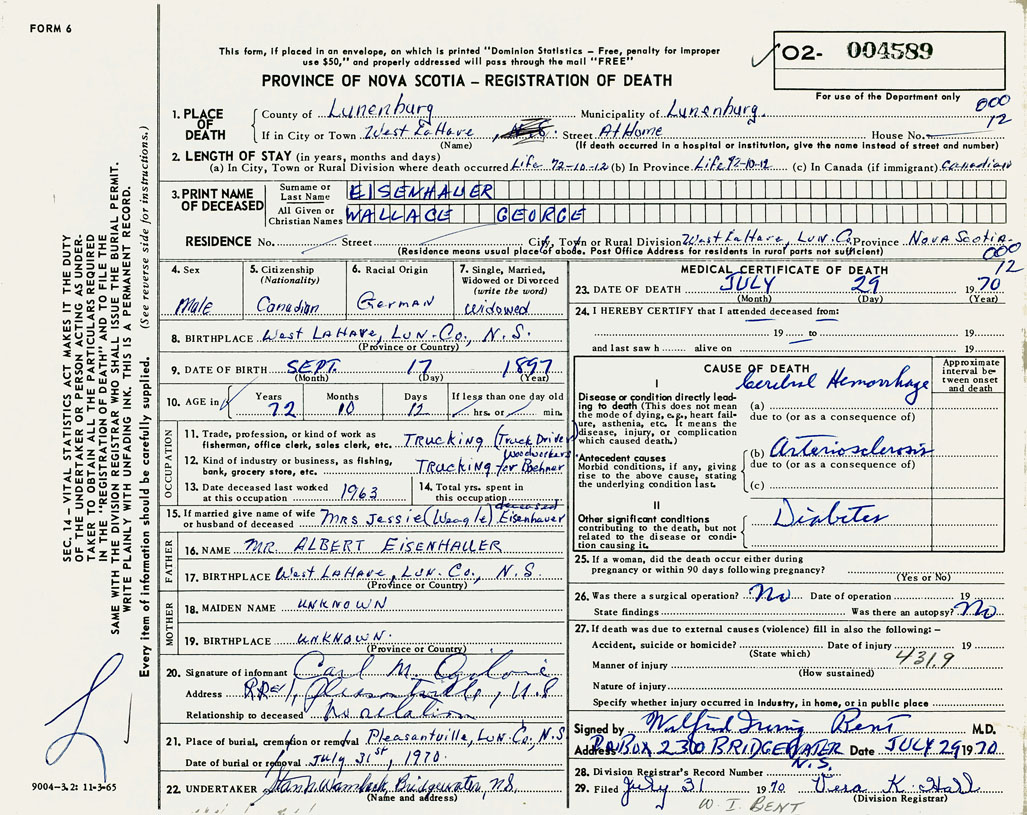 FORM 6
This form, if placed in an envelope, on which is printed "Dominion Statistics – Free, penalty for improper
use $50," and properly addressed will pass through the mail "FREE"
PROVINCE OF NOVA SCOTIA – REGISTRATION OF DEATH
O2- 004589
For use of the Department only
000
12
1. PLACE OF DEATH
County of Lunenburg Municipality of Lunenburg.
If in City or Town West LaHave, Street At Home House No.
(Name) (If death occurred in a hospital or institution, give the name instead of street and number)
2. LENGTH OF STAY (in years, months and days)
(a) In City, Town or Rural Division where death occurred Life 72-10-12 (b) In Province Life 72-10-12 (c) In Canada (if immigrant) Canadian
3. PRINT NAME OF DECEASED
Surname or Last Name EISENHAUER
All Given or Christian Names WALLACE GEORGE
RESIDENCE No. Street City, Town or Rural Division West LaHave, Lun. Co. Province Nova Scotia.
(Residence means usual place of abode. Post Office Address for residents in rural parts not sufficient)
000
12
4. Sex
Male
5. Citizenship
(Nationality)
Canadian
6. Racial Origin
German
7. Single, Married,
Widowed or Divorced
(write the word)
Widowed
8. BIRTHPLACE West LaHave, Lun. Co., N.S.
(Province or Country)
9. DATE OF BIRTH SEPT. 17 1897
(Month) (Day) (Year)
10. AGE in
Years Months Days If less than one day old
72 10 12 hrs. or min.
OCCUPATION
11. Trade, profession, or kind of work as
fisherman, office clerk, sales clerk, etc. Trucking (Truck Driver)
12. Kind of industry or business, as fishing,
bank, grocery store, etc. Trucking for Boehner woodworkers
13. Date deceased last worked
at this occupation 1963
14. Total yrs. spent in
this occupation
15. If married give name of wife
or husband of deceased Mrs Jessie (Weagle) Eisenhauer deceased
FATHER
16. NAME MR. ALBERT EISENHAUER
17. BIRTHPLACE West LaHave, Lun. Co., N.S.
(Province or Country)
MOTHER
18. MAIDEN NAME UNKNOWN
19. BIRTHPLACE UNKNOWN.
(Province or Country)
20. Signature of informant Carl M.
Address RR#1, Pleasantville, N.S
Relationship to deceased no relation
21. Place of burial, cremation or removal Pleasantville, Lun. Co., N.S
Date of burial or removal July 31st, 1970.
22. UNDERTAKER Bridgewater, NS,
(Name and address)
MEDICAL CERTIFICATE OF DEATH
23. DATE OF DEATH JULY 29 1970
(Month) (Day) (Year)
24. I HEREBY CERTIFY that I attended deceased from:
19 to 19
and last saw h alive on 19
CAUSE OF DEATH
Approximate interval between onset and death
I
Disease or condition directly leading to death (This does not mean the mode of dying, e.g., heart failure, asthenia, etc. It means the disease, injury, or complication which caused death.)
Cerebral Hemorrhage
(a)
due to (or as a consequence of)
Antecedent causes
Morbid conditions, if any, giving rise to the above cause, stating the underlying condition last.
(b) Arteriosclerosis
due to (or as a consequence of)
(c)
II
Other significant conditions
contributing to the death, but not related to the disease or condition causing it.
Diabetes
25. If a woman, did the death occur either during
pregnancy or within 90 days following pregnancy?
(Yes or No)
26. Was there a surgical operation? No Date of operation 19
State findings Was there an autopsy? No
27. If death was due to external causes (violence) fill in also the following: –
Accident, suicide or homicide? Date of injury 19
(State which) 4319
Manner of injury
(How sustained)
Nature of injury
Specify whether injury occurred in industry, in home, or in public place
Signed by Wilfred Irving Bent M.D.
Address P.O. BOX 2300 BRIDGEWATER N.S. Date JULY 29 1970
28. Division Registrar's Record Number
29. Filed July 31 1970 Vera K. Hall
(Division Registrar)
W. I. BENT
SEC. 14 – VITAL STATISTICS ACT MAKES IT THE DUTY
OF THE UNDERTAKER OR PERSON ACTING AS UNDER-
TAKER TO OBTAIN ALL THE PARTICULARS REQUIRED
IN THE "REGISTRATION OF DEATH" AND TO FILE THE
SAME WITH THE DIVISION REGISTRAR WHO SHALL ISSUE THE BURIAL PERMIT.
WRITE PLAINLY WITH UNFADING INK. THIS IS A PERMANENT RECORD.
Every item of information should be carefully supplied. (See reverse side for instructions.)
9004–3.2: 11-3-65